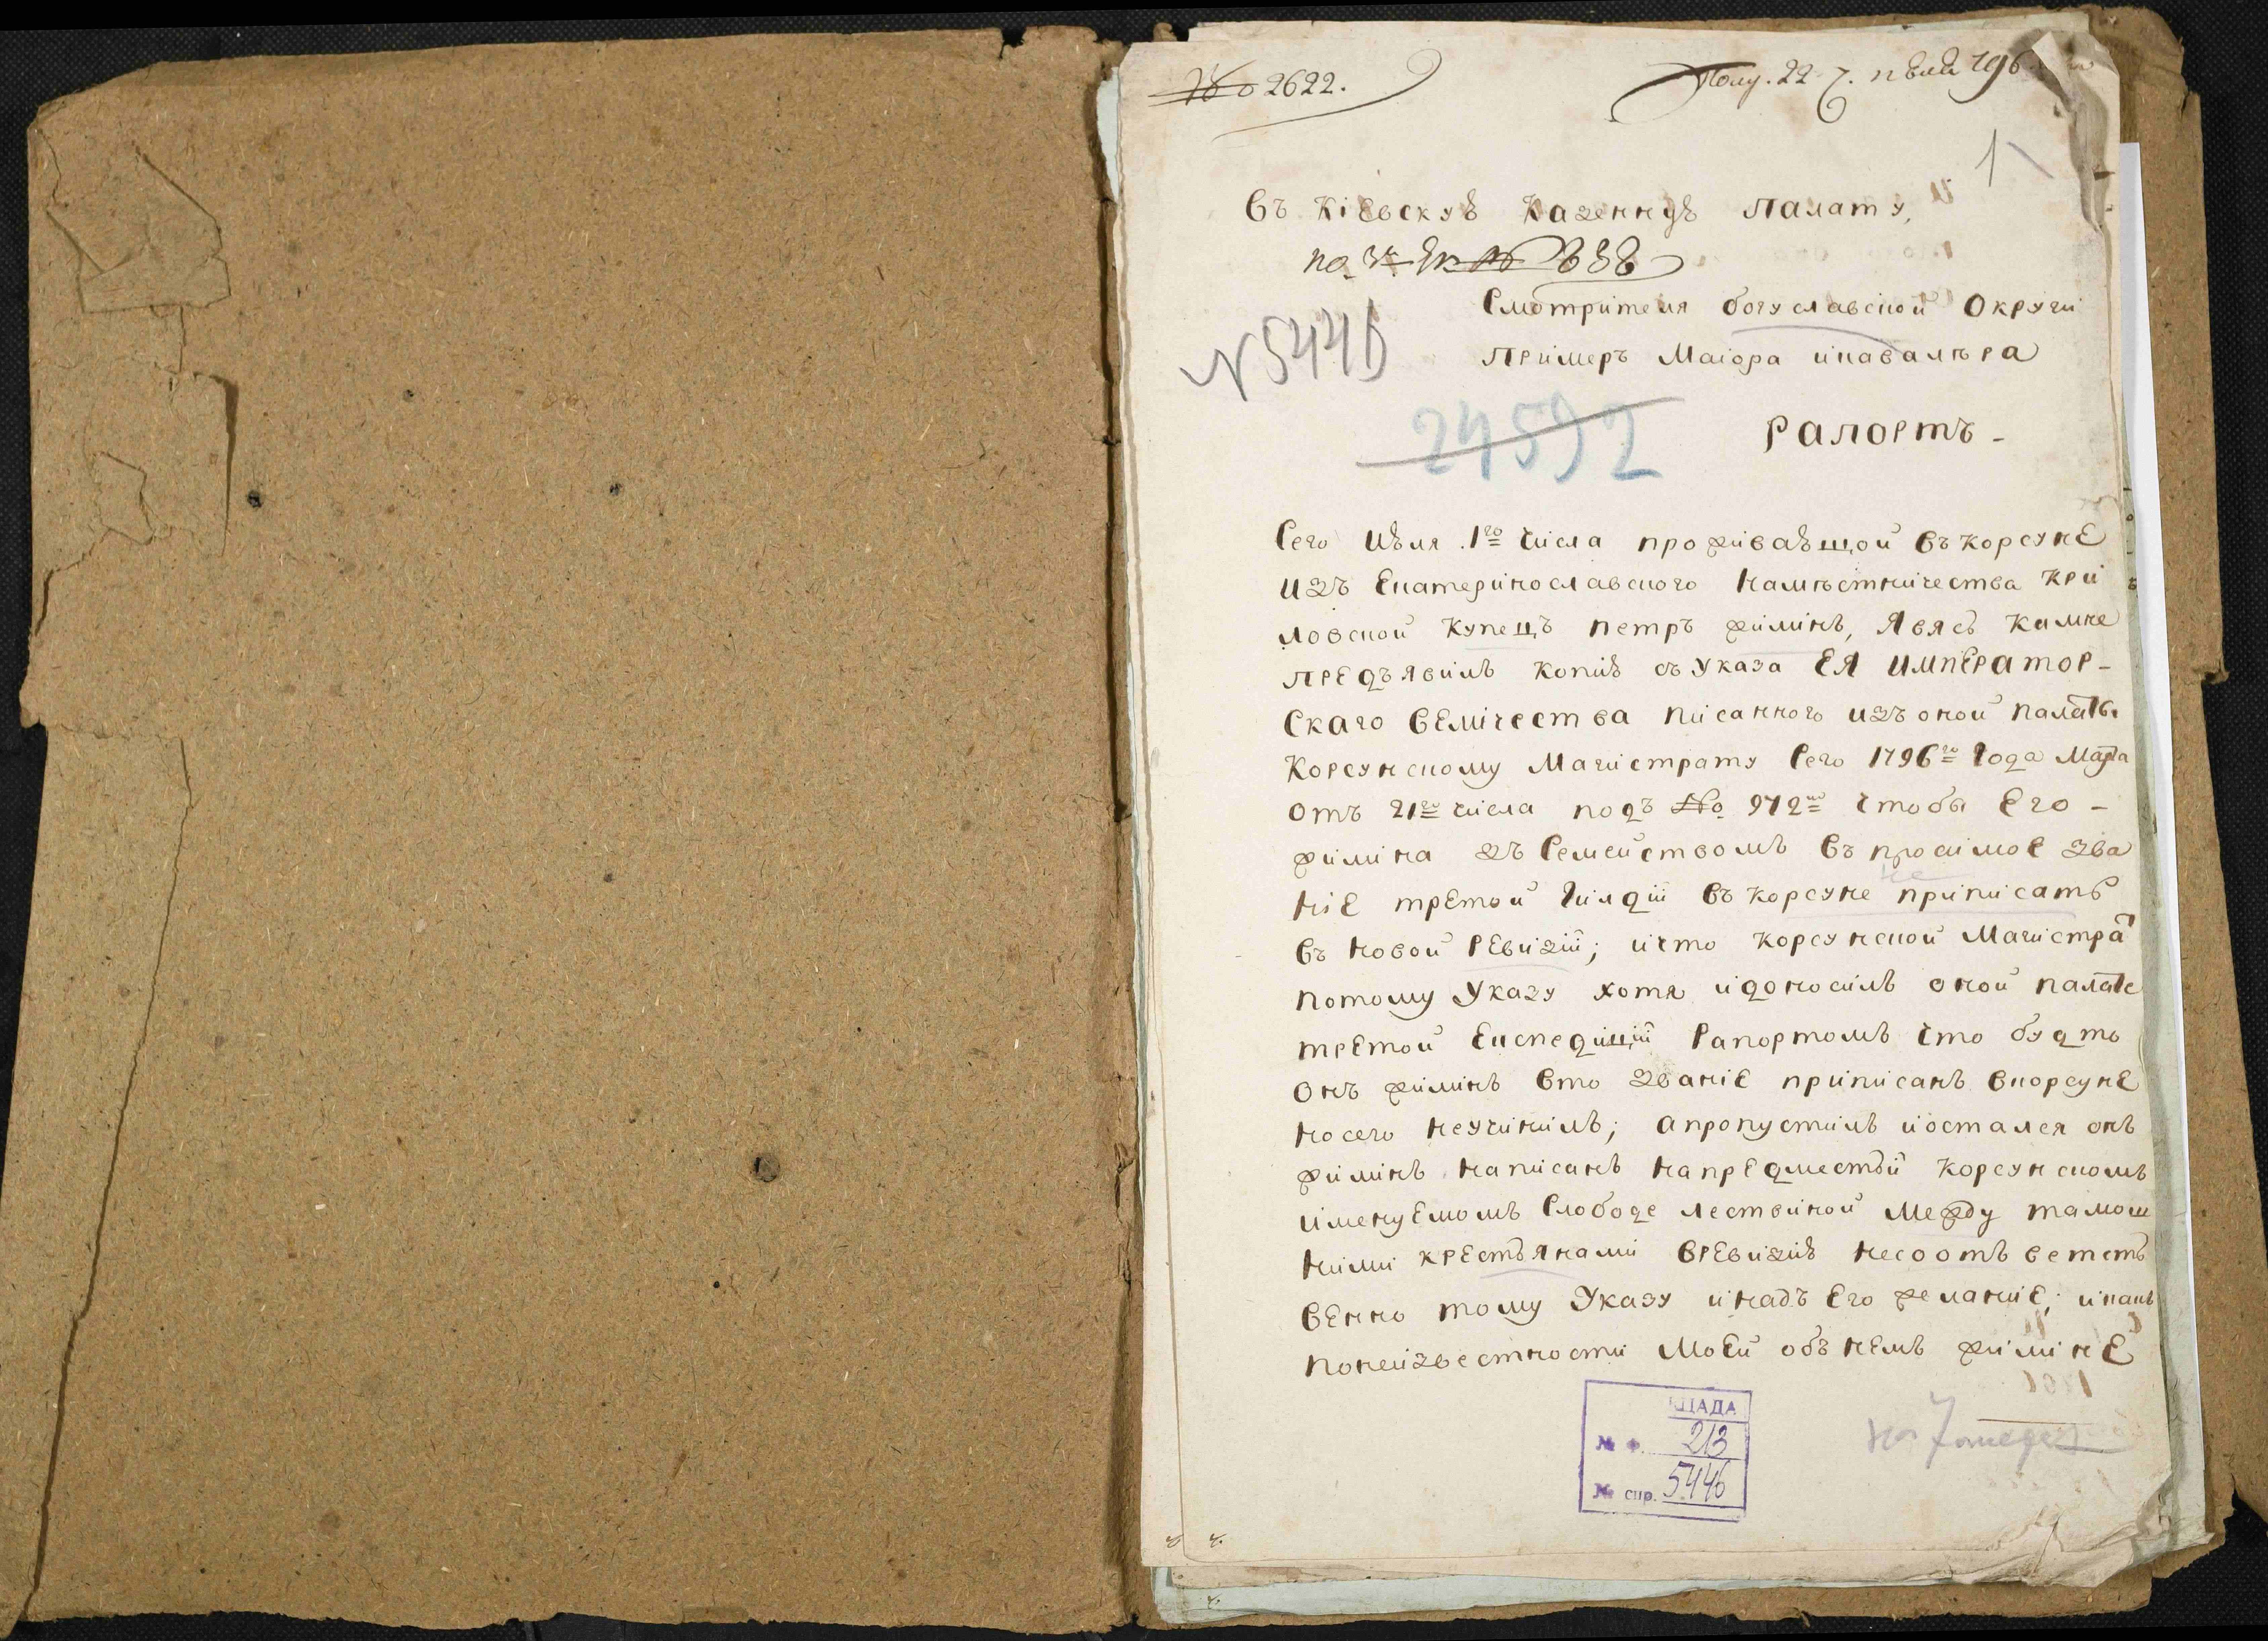 № 2622.
Полу. 22 7. июля 1796
1
Въ Кіевскую Казенную Палату,
по
Смотрителя богуславской Округи
№ 5446
Примеръ Маіора икавалѣра
24592
Рапортъ -
Сего июля 1го числа проживающой въ корсуне
изъ Екатеринославского Намѣстничества Кри
ловской купецъ петръ филинъ, Явясь Камне
предъявилъ копию съ Указа ЕЯ ИМПЕРАТОР-
Скаго Величества писанного изъ оной палаты
Корсунскому Магистрату Сего 1796го Года Марта
отъ 21го числа подъ № 972м чтобы Его -
филина зъ Семействомъ въ просимое зва
ніе третой Гилдіи въ корсуне приписать
не
въ новой Ревизіи; ичто корсунской Магистратъ
потому Указу хотя идоносилъ оной палате
третой Експедиціи Рапортомъ что будто
онъ филинъ вто званіе приписанъ вкорсуне
носего неучинилъ; апропустилъ иостался онъ
филинъ написанъ напредместьи корсунскомъ
именуемомъ Слободе лествиной между тамош
ними крестьянами вревизию несоответств
венно тому Указу инадъ Его желаніе; икакъ
понеизвестности Моей объ немъ филине
ЦДАДА
№ ф. 213
№ спр. 5446